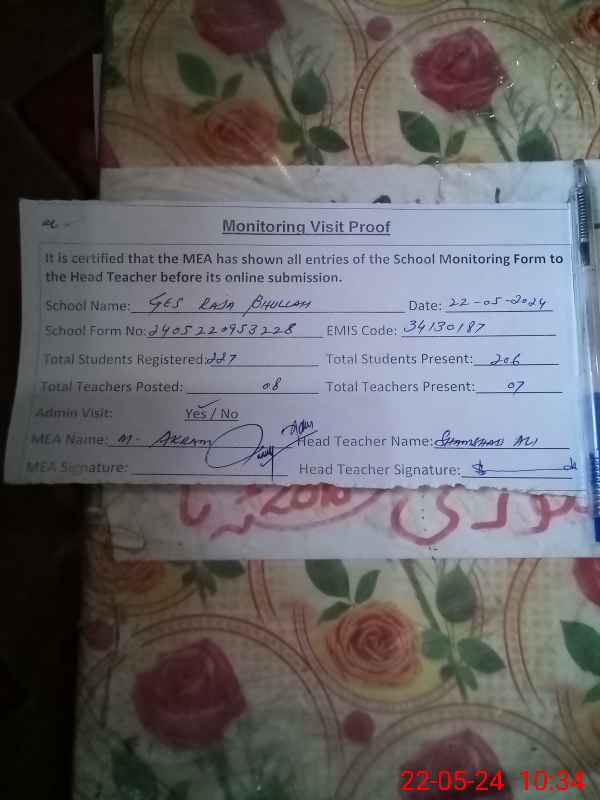 Monitoring Visit Proof
It is certified that the MEA has shown all entries of the School Monitoring Form to
the Head Teacher before its online submission.
School Name: GES RAJA BHULLAH Date: 22-05-2024
School Form No: 2405220953228 EMIS Code: 34130187
Total Students Registered: 227 Total Students Present: 206
Total Teachers Posted: 08 Total Teachers Present: 07
Admin Visit: Yes / No
MEA Name: M. AKRAM Head Teacher Name: ALI
MEA Signature: Head Teacher Signature:
22-05-24 10:34